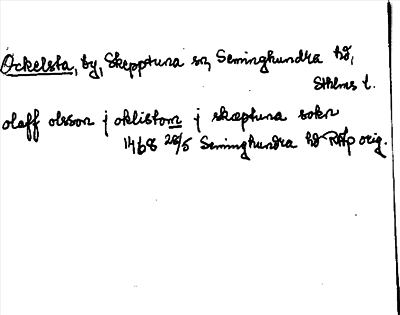 Ockelsta, by, Skepptuna sn, Seminghundra hd,
Sthlms l.
olaff olsson j oklistom j skæptuna sokn
1468 28/5 Seminghundra hd RAp orig.